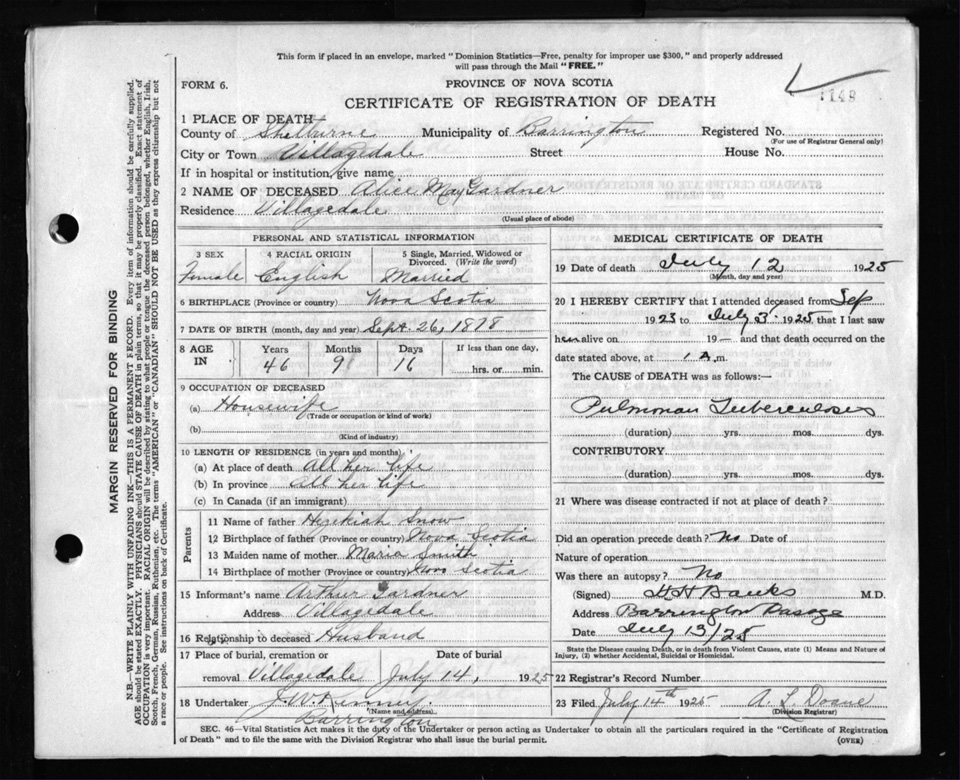 This form if placed in an envelope, marked "Dominion Statistics—Free, penalty for improper use $300," and properly addressed
will pass through the Mail "FREE."
FORM 6.
PROVINCE OF NOVA SCOTIA
CERTIFICATE OF REGISTRATION OF DEATH
1149
1 PLACE OF DEATH
County of Shelburne Municipality of Barrington Registered No.
(For use of Registrar General only)
City or Town Villagedale Street House No.
If in hospital or institution, give name
2 NAME OF DECEASED Alice May Gardner
Residence Villagedale
(Usual place of abode)
PERSONAL AND STATISTICAL INFORMATION
3 SEX 4 RACIAL ORIGIN 5 Single, Married, Widowed or
Divorced. (Write the word)
Female English Married
6 BIRTHPLACE (Province or country) Nova Scotia
7 DATE OF BIRTH (month, day and year) Sept. 26, 1878
8 AGE IN Years Months Days If less than one day,
46 9 16 hrs. or min.
9 OCCUPATION OF DECEASED
(a) Housewife
(Trade or occupation or kind of work)
(b)
(Kind of industry)
10 LENGTH OF RESIDENCE (in years and months)
(a) At place of death All her life
(b) In province All her life
(c) In Canada (if an immigrant)
Parents
11 Name of father Hezekiah Snow
12 Birthplace of father (Province or country) Nova Scotia
13 Maiden name of mother Maria Smith
14 Birthplace of mother (Province or country) Nova Scotia
15 Informant's name Arthur Gardner
Address Villagedale
16 Relationship to deceased Husband
17 Place of burial, cremation or Date of burial
removal Villagedale July 14, 1925
18 Undertaker J. W. Kenney
(Name and address)
Barrington
MEDICAL CERTIFICATE OF DEATH
19 Date of death July 12 1925
(Month, day and year)
20 I HEREBY CERTIFY that I attended deceased from Sep
1923 to July 3 1925 that I last saw
her alive on 19— and that death occurred on the
date stated above, at 1 A.m.
The CAUSE of DEATH was as follows:—
Pulmonary Tuberculosis
(duration) yrs. mos. dys.
CONTRIBUTORY
(duration) yrs. mos. dys.
21 Where was disease contracted if not at place of death?
Did an operation precede death? No Date of
Nature of operation
Was there an autopsy? No
(Signed) H H Banks M.D.
Address Barrington Passage
Date July 13/25
State the Disease causing Death, or in death from Violent Causes, state (1) Means and Nature of
Injury, (2) whether Accidental, Suicidal or Homicidal.
22 Registrar's Record Number
23 Filed July 14th 1925 A. L. Doane
(Division Registrar)
SEC. 46—Vital Statistics Act makes it the duty of the Undertaker or person acting as Undertaker to obtain all the particulars required in the "Certificate of Registration
of Death" and to file the same with the Division Registrar who shall issue the burial permit. (OVER)
MARGIN RESERVED FOR BINDING
N.B.—WRITE PLAINLY WITH UNFADING INK—THIS IS A PERMANENT RECORD. Every item of information should be carefully supplied.
AGE should be stated EXACTLY. PHYSICIANS should STATE CAUSE OF DEATH in plain terms, so that it may be properly classified. Exact statement of
OCCUPATION is very important. RACIAL ORIGIN will be described by stating to what people or tongue the deceased person belonged, whether English, Irish,
Scotch, French, German, Russian, Ruthenian, etc. The terms "AMERICAN" or "CANADIAN" SHOULD NOT BE USED as they express citizenship but not
a race or people. See instructions on back of Certificate.